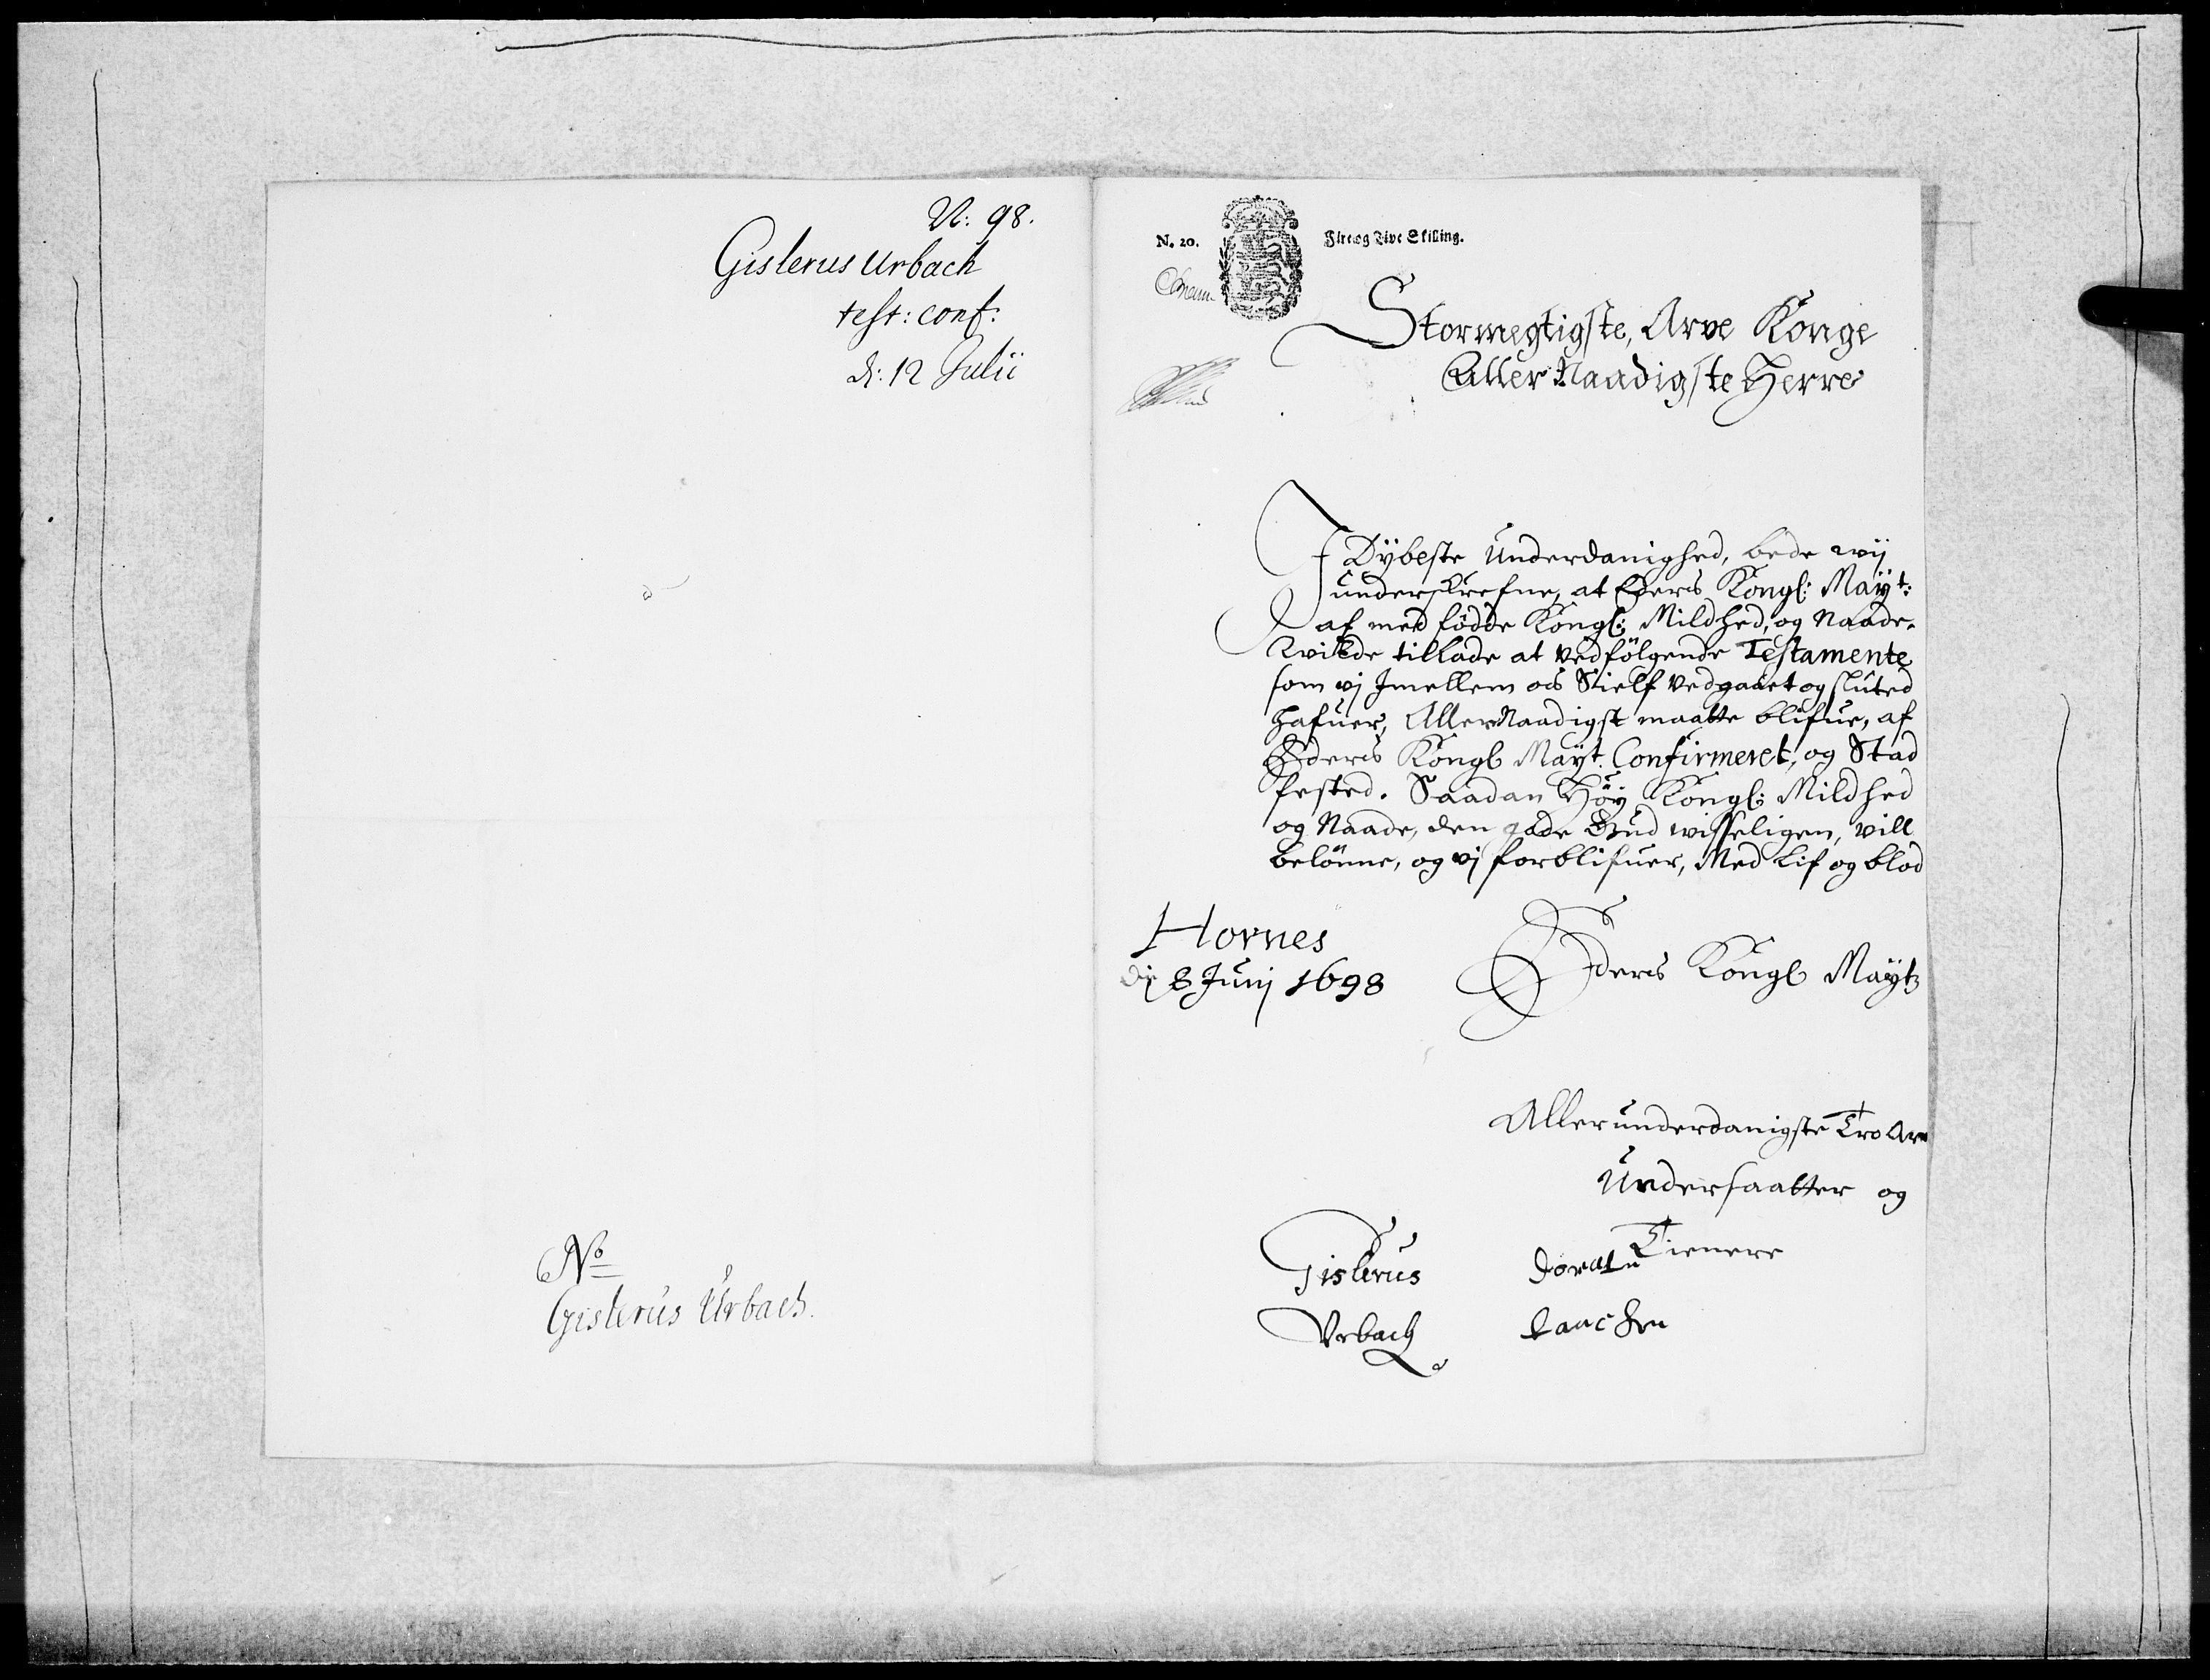 N: 98.
Gislerus Urbach
test: conf:
d: 12 Julii
No
Gislerus Urbach.
N. 20.
Fire og Tive Skilling.
Stormegtigste, Arve Konge
Aller Naadigste Herre
I Dÿbeste Underdanighed, bede wij
underskrefne, at Eders Kongl: Maÿt:
af med fødde Kongl: Mildhed, og Naade,
wilde tillade at vedfölgende Testamente
som vj Jmellem os Sielf vedgaaet og sluted
hafuer, Aller Naadigst maatte blifue, af
Eders Kongl Maÿt. Confirmeret, og Stad
fested. Saadan Høÿ Kongl: Mildhed
og Naade, den gode Gud wisseligen, vill
belönne, og vj forblifuer, Med Lif og blod
Hornes
8 Junj 1698
Eders Kongl Maÿtz
Allerunderdanigste Tro Arv
Undersaatter og
Tienere
Gislerus
Urbach